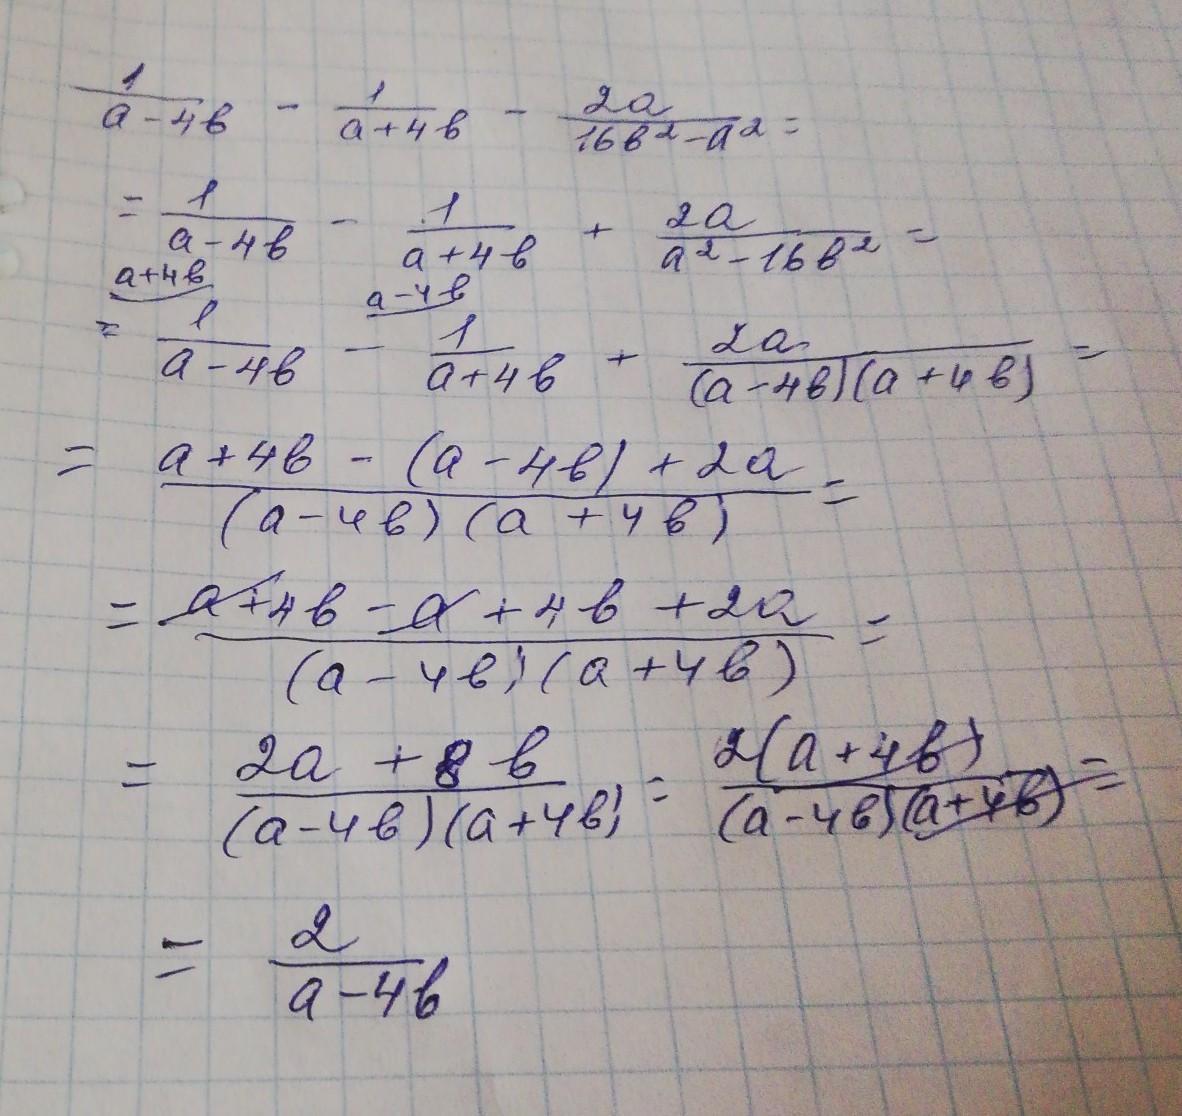 1/(a-4b) - 1/(a+4b) - 2a/(16b²-a²) =
= 1/(a-4b) - 1/(a+4b) + 2a/(a²-16b²) =
a+4b a-4b
= 1/(a-4b) - 1/(a+4b) + 2a/((a-4b)(a+4b)) =
= (a+4b - (a-4b) + 2a)/((a-4b)(a+4b)) =
= (a+4b-a+4b+2a)/((a-4b)(a+4b)) =
= (2a+8b)/((a-4b)(a+4b)) = 2(a+4b)/((a-4b)(a+4b)) =
= 2/(a-4b)